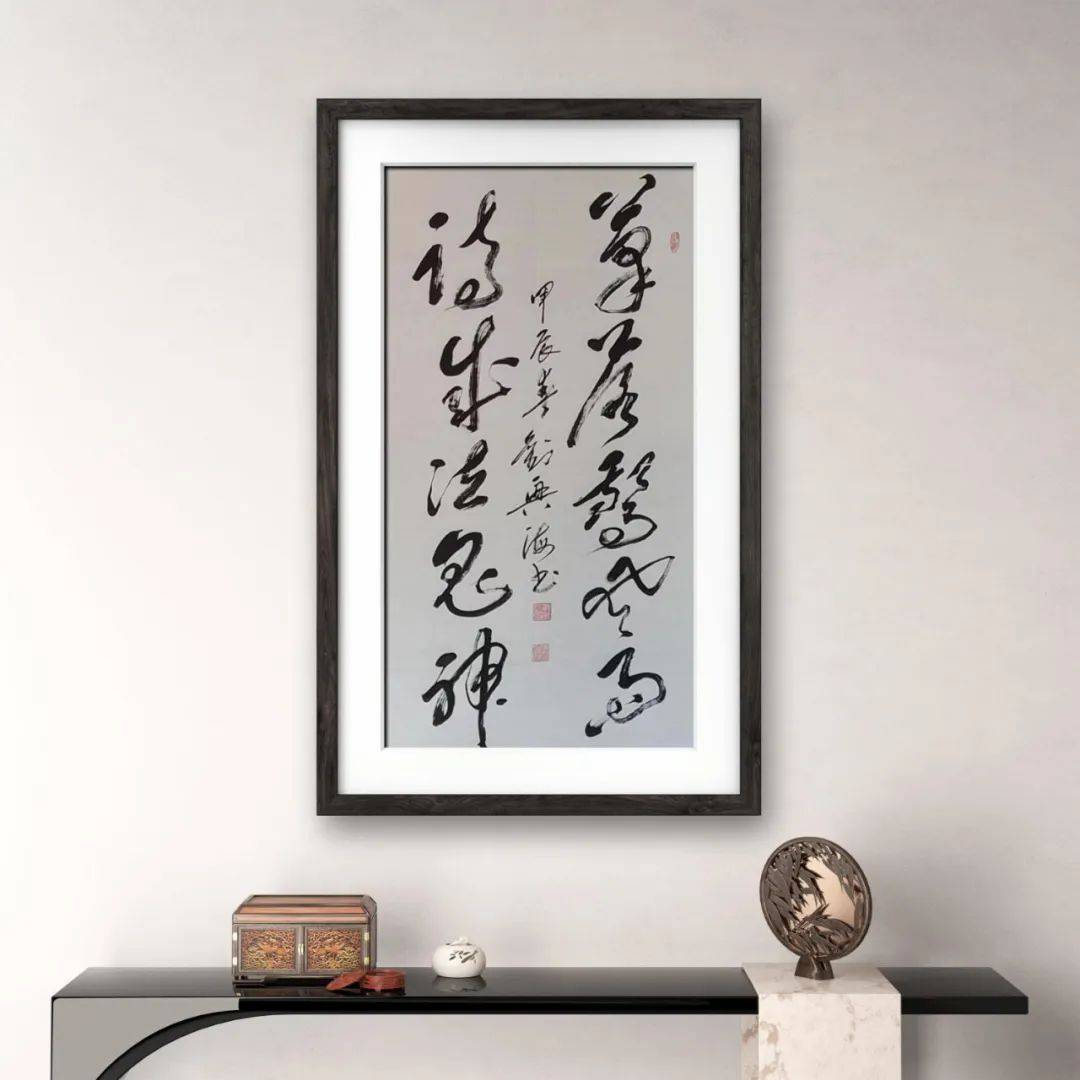 筆落驚風雨
詩成泣鬼神
甲辰春劉興海書